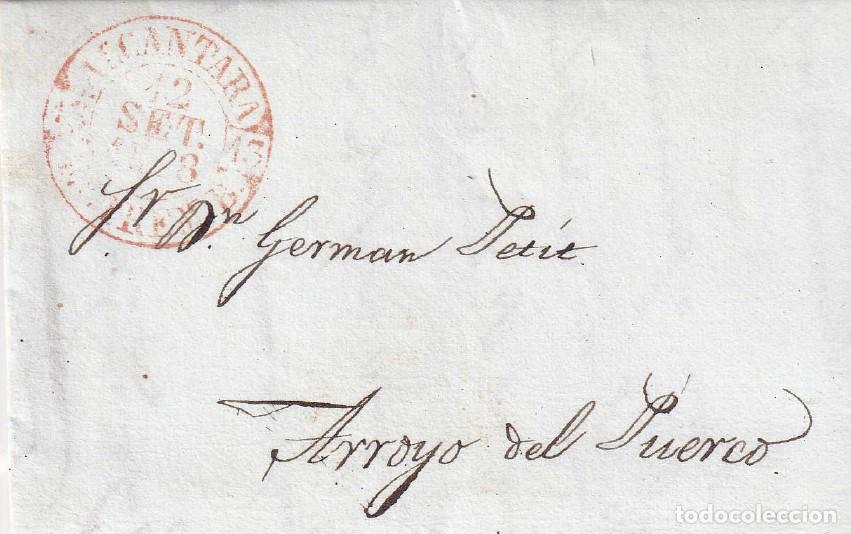 ALCANTARA
12
SET.
Sr. Dn. German Petit.
Arroyo del Puerco
todocoleccion